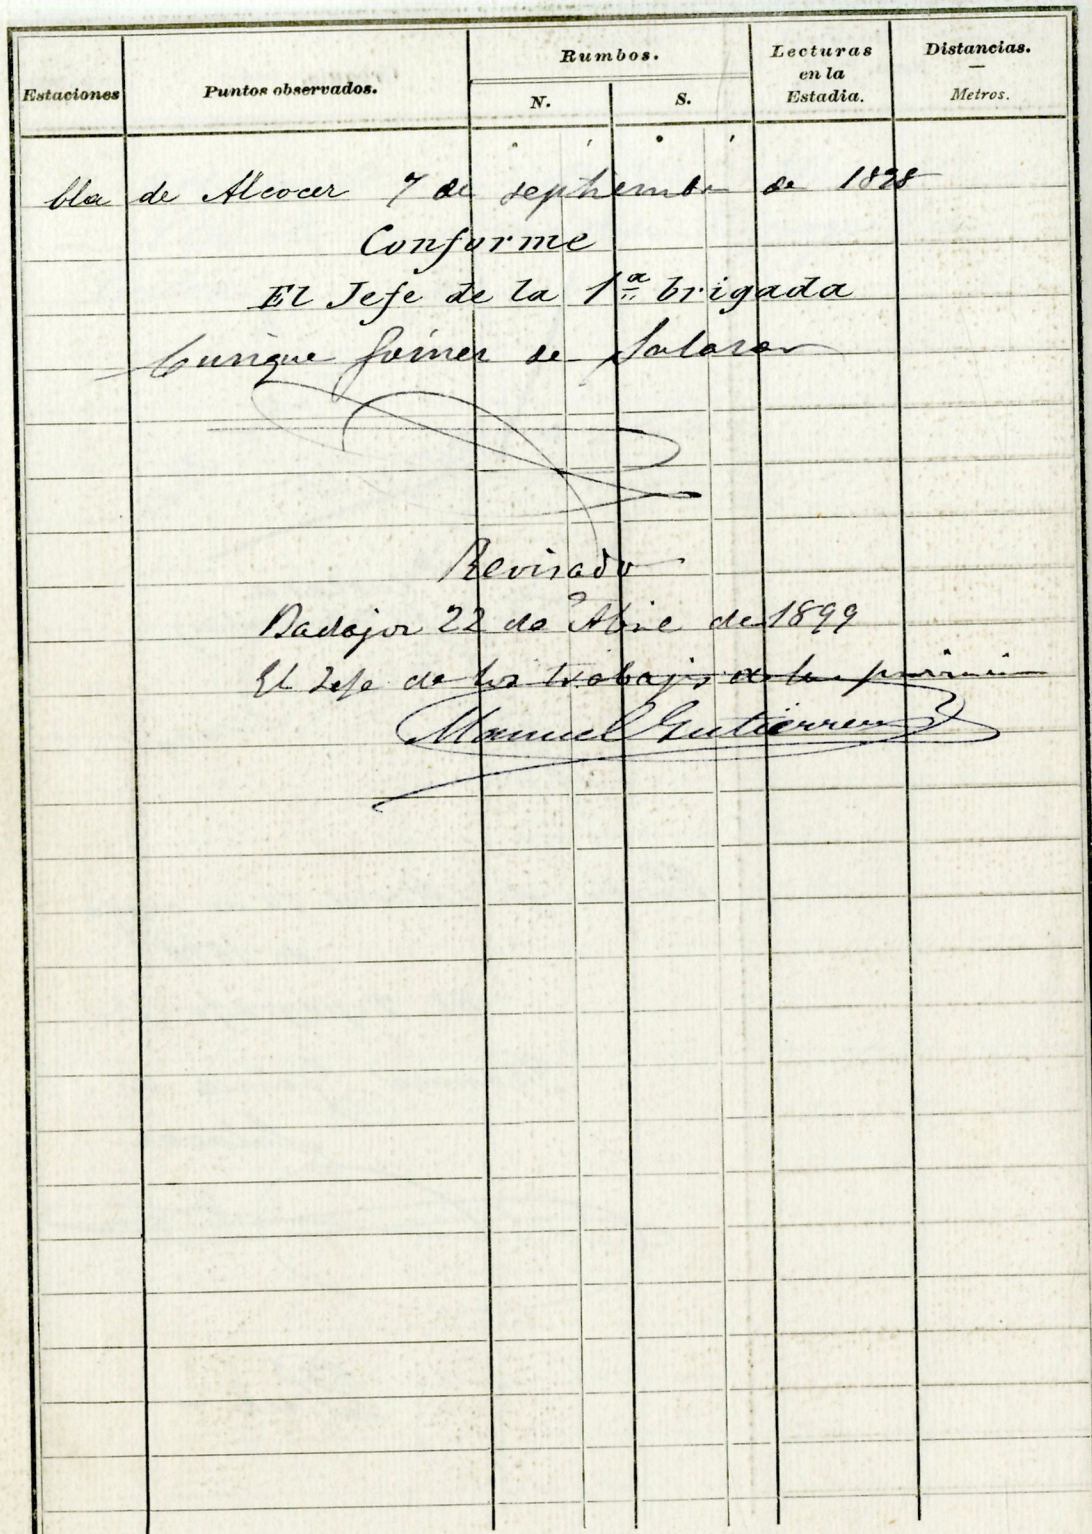 Estaciones
Puntos observados.
Rumbos.
N.
S.
Lecturas
en la
Estadia.
Distancias.
Metros.
bla de Alcocer 7 de septiembre de 1898
Conforme
El Jefe de la 1ª brigada
Enrique Giner de Salazar
Revisado
Badajoz 22 de Abril de 1899
El Jefe de los trabajos de la provincia
Manuel Gutiérrez